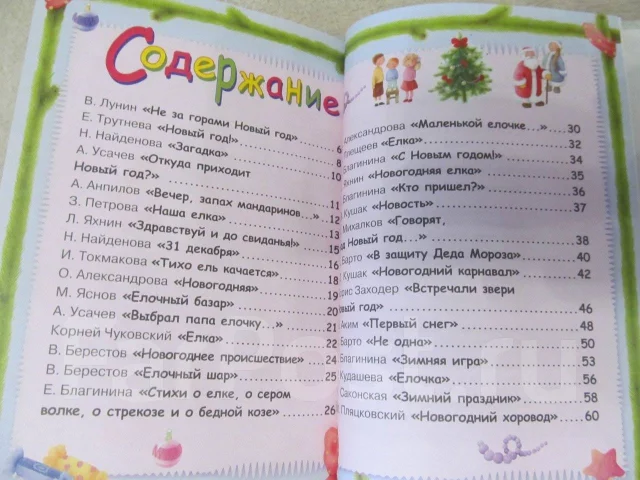 Содержание
В. Лунин «Не за горами Новый год» 6
Е. Трутнева «Новый год!» 8
Н. Найденова «Загадка» 10
А. Усачев «Откуда приходит
Новый год?» 11
А. Анпилов «Вечер, запах мандаринов...» 12
З. Петрова «Наша елка» 13
Л. Яхнин «Здравствуй и до свиданья!» 15
Н. Найденова «31 декабря» 16
И. Токмакова «Тихо ель качается» 18
О. Александрова «Новогодняя» 19
М. Яснов «Елочный базар» 20
А. Усачев «Выбрал папа елочку...» 21
Корней Чуковский «Елка» 22
В. Берестов «Новогоднее происшествие» 24
В. Берестов «Елочный шар» 25
Е. Благинина «Стихи о елке, о сером
волке, о стрекозе и о бедной козе» 26
Александрова «Маленькой елочке...» 30
«Елка» 32
Благинина «С Новым годом!» 34
Яхнин «Новогодняя елка» 35
Благинина «Кто пришел?» 36
Кушак «Новость» 37
Михалков «Говорят,
Новый год...» 38
Барто «В защиту Деда Мороза» 40
Кушак «Новогодний карнавал» 42
Заходер «Встречали звери
год» 46
Аким «Первый снег» 48
Барто «Не одна» 50
Благинина «Зимняя игра» 53
Кудашева «Елочка» 56
Саконская «Зимний праздник» 58
Пляцковский «Новогодний хоровод» 60